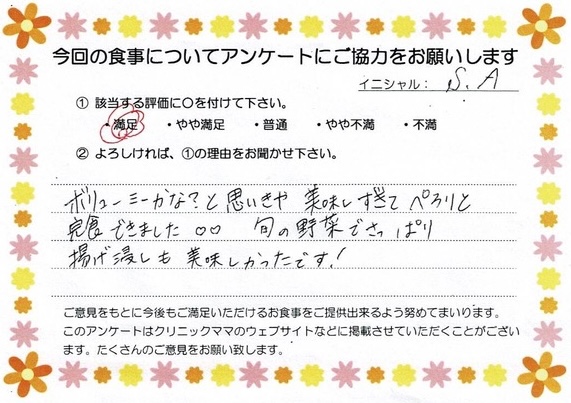 今回の食事についてアンケートにご協力をお願いします
イニシャル： S.A
① 該当する評価に○を付けて下さい。
・満足 ・やや満足 ・普通 ・やや不満 ・不満
② よろしければ、①の理由をお聞かせ下さい。
ボリューミーかな？と思いきや 美味しすぎて ぺろりと
完食できました ○○ 旬の野菜でさっぱり
揚げ浸しも 美味しかったです！
ご意見をもとに今後もご満足いただけるお食事をご提供出来るよう努めてまいります。
このアンケートはクリニックママのウェブサイトなどに掲載させていただくことがござい
ます。たくさんのご意見をお願い致します。